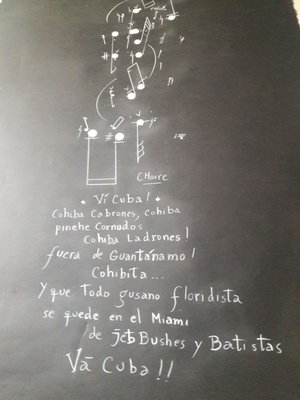 CHoire
Vi Cuba!
Cohiba Cabrones, cohiba
pinche Cornudos
Cohiba Ladrones!
fuera de Guantánamo!
Cohibita...
y que todo gusano floridista
se quede en el Miami
de JebBushes y Batistas
Vā Cuba!!